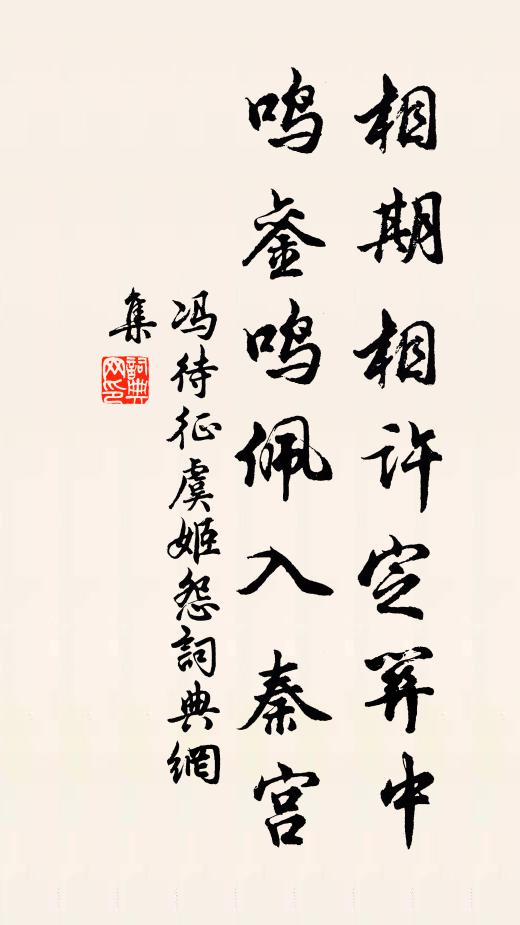 相期相许定关中
鸣銮鸣佩入秦宫
冯待征虞姬怨詞典網
集
詞典网印